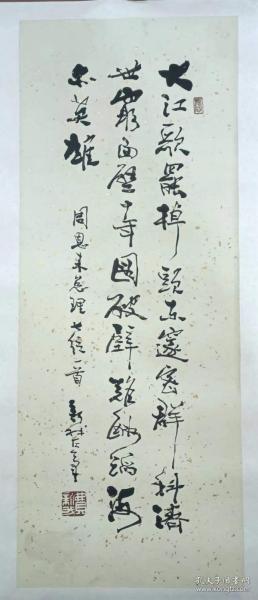 大江歌罢掉头东邃密群科济
世穷面壁十年图破壁难酬蹈海
亦英雄
周恩来总理七绝一首
孔夫子旧书网
www.kongfz.com